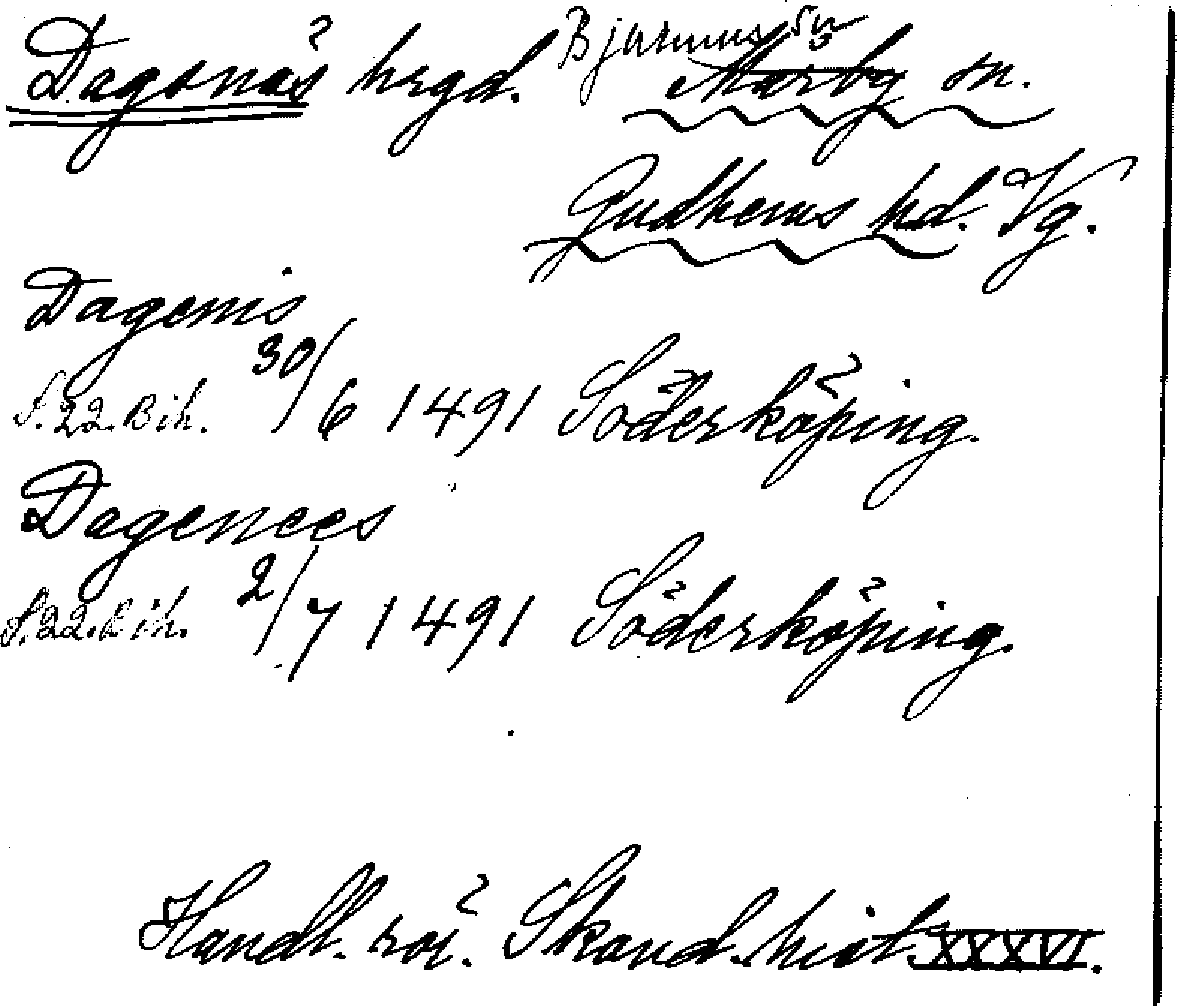 Dagsnäs hrgd. Bjärums sn Marby sn.
Gudhems hd. Vg.
Dagenis
S. 22. Bih. 30/6 1491 Söderköping.
Dagenees
S. 22. Bih. 2/7 1491 Söderköping.
Handl. rör. Skand. hist. XXXVI.